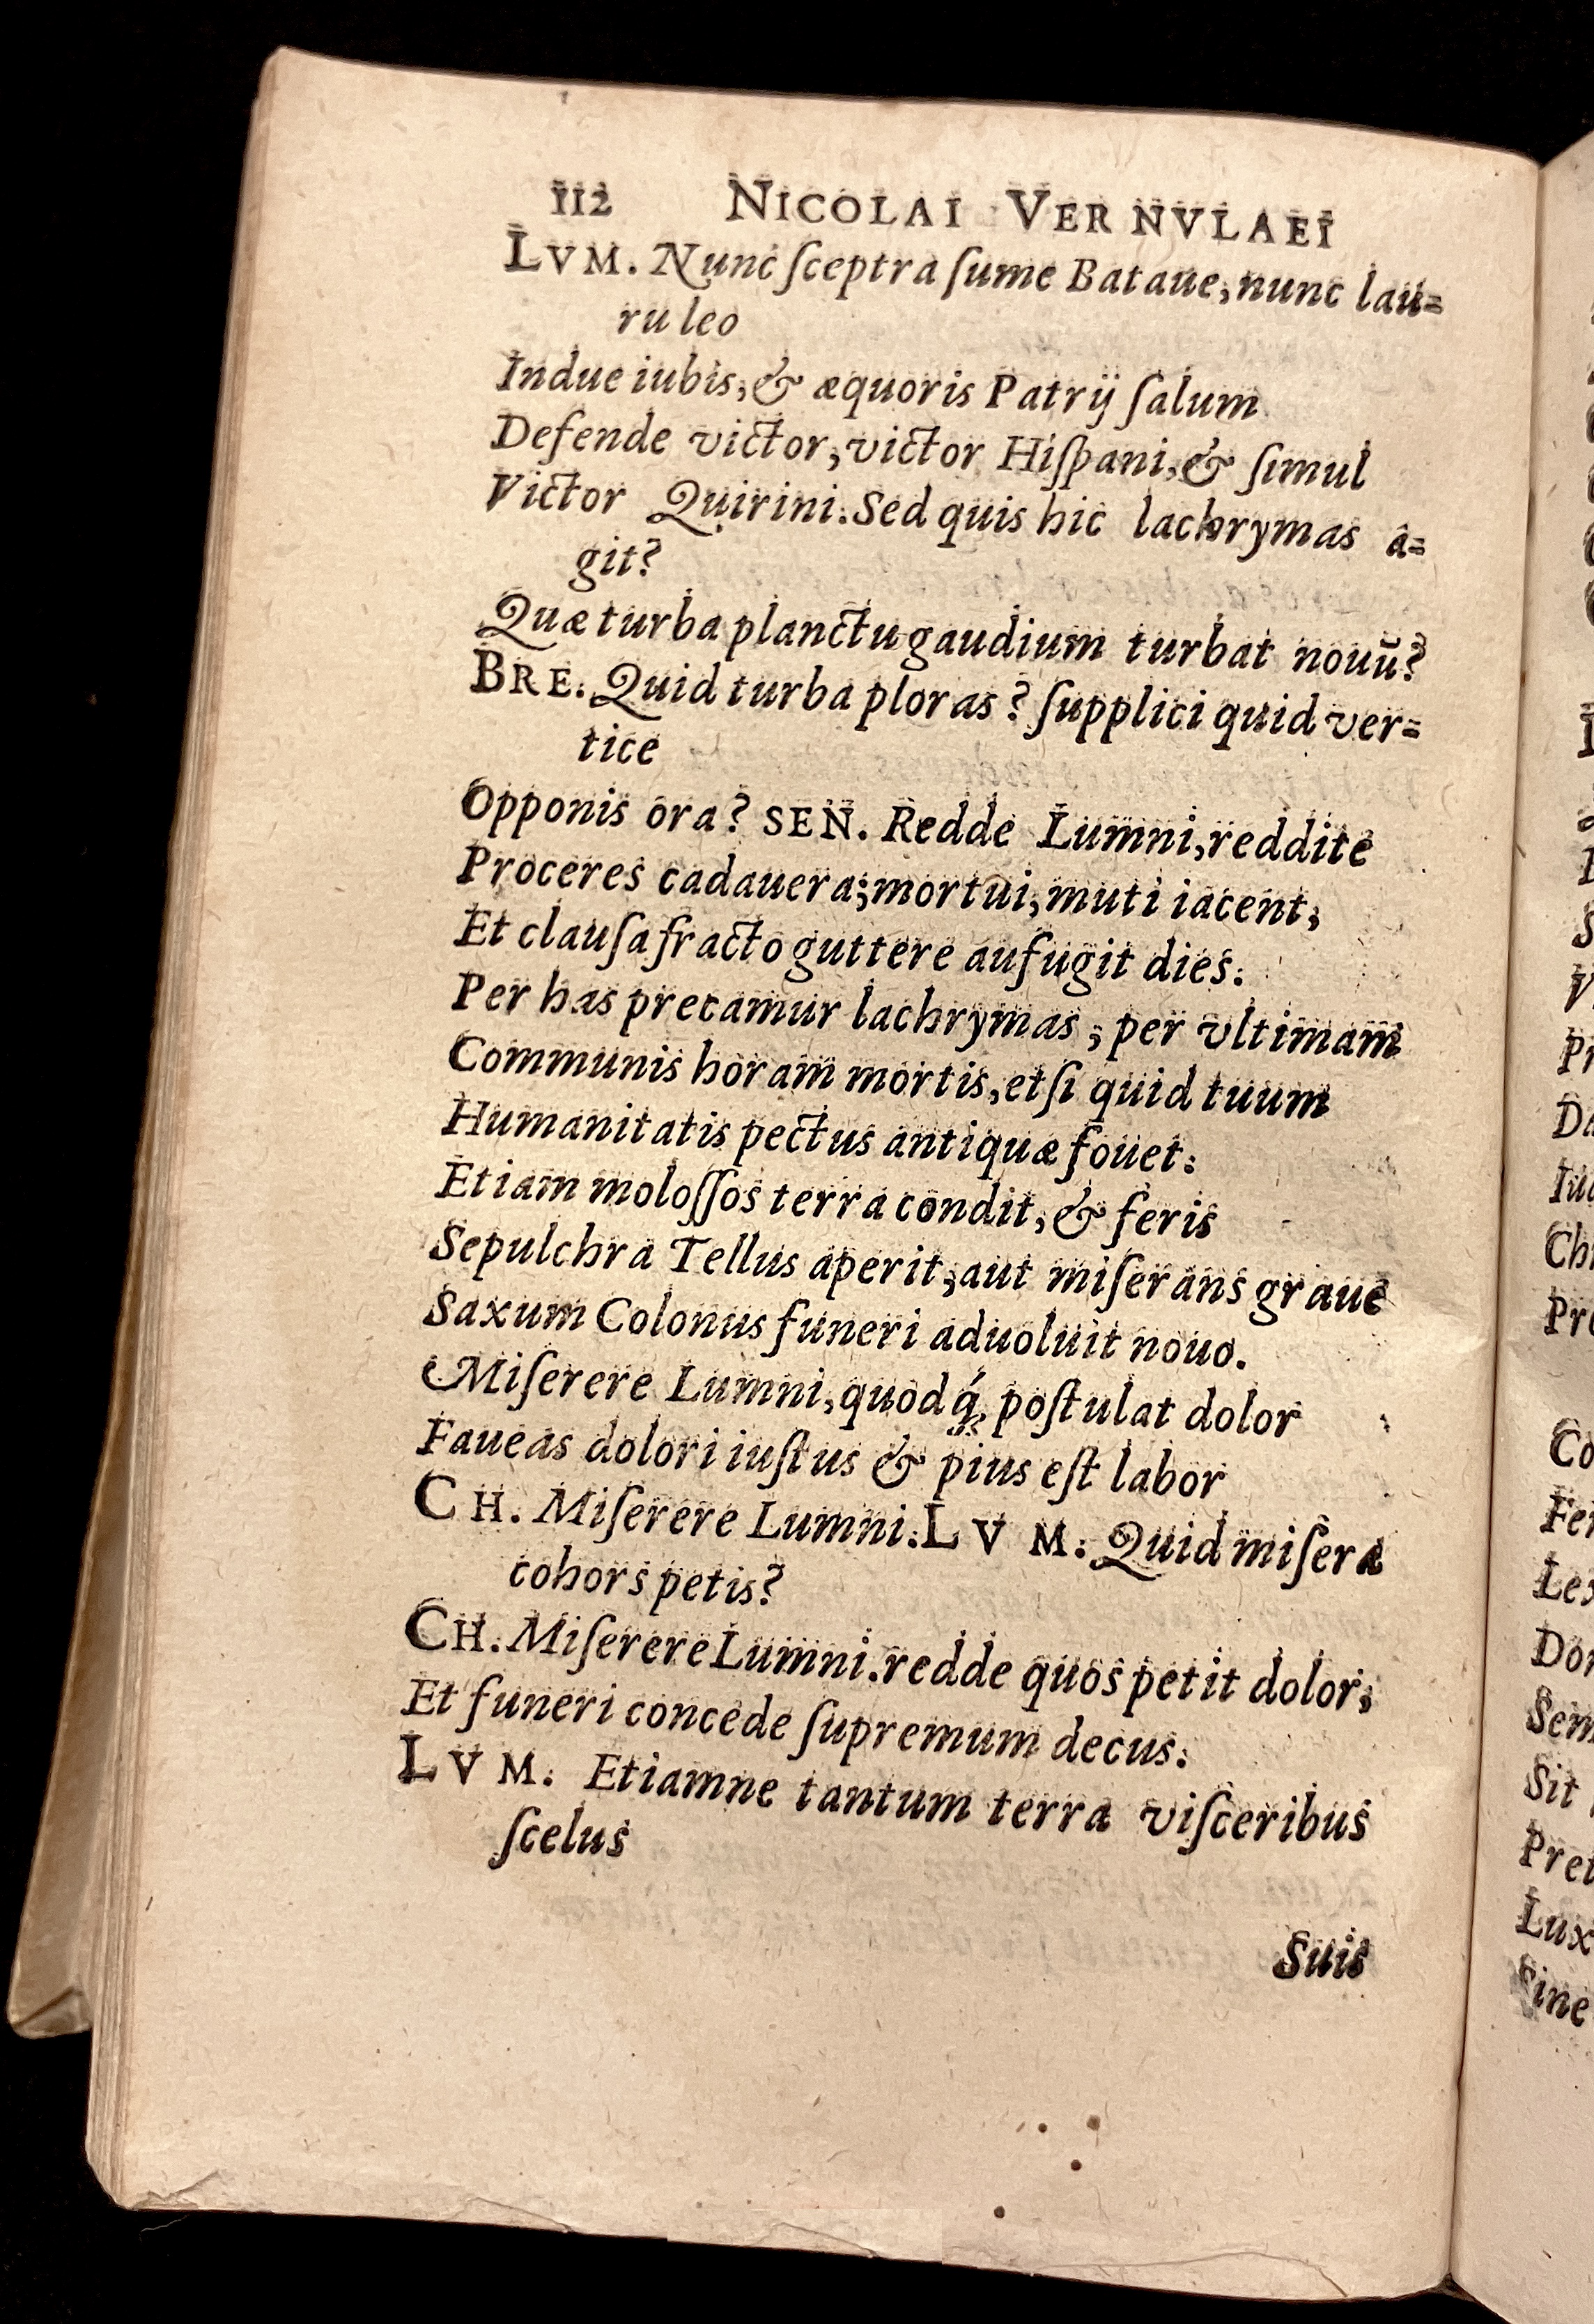 112 NICOLAI VERNVLAEI
LVM. Nunc ſceptra ſume Bataue, nunc lau=
ru leo
Indue iubis, & æquoris Patrij ſalum
Defende victor, victor Hiſpani, & ſimul
Victor Quirini. Sed quis hic lachrymas a=
git?
Quæ turba planctu gaudium turbat nouũ?
BRE. Quid turba ploras? ſupplici quid ver=
tice
Opponis ora? SEN. Redde Lumni, reddite
Proceres cadauera; mortui, muti iacent,
Et clauſa fracto guttere aufugit dies.
Per has precamur lachrymas, per vltimam
Communis horam mortis, et ſi quid tuum
Humanitatis pectus antiquæ fouet.
Etiam moloſſos terra condit, & feris
Sepulchra Tellus aperit, aut miſerans graue
Saxum Colonus funeri aduoluit nouo.
Miſerere Lumni, quodq́; poſtulat dolor
Faueas dolori iuſtus & pius eſt labor
CH. Miſerere Lumni. LVM. Quid miſera
cohors petis?
CH. Miſerere Lumni. redde quos petit dolor,
Et funeri concede ſupremum decus.
LVM. Etiamne tantum terra viſceribus
ſcelus
Suis